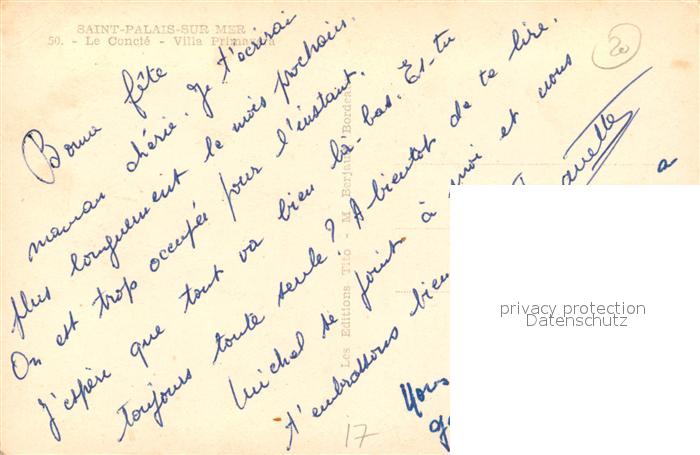 SAINT-PALAIS-SUR MER
50. - Le Concié - Villa Primavera
20
Bonne fête
maman chérie. Je t'écrirai
plus longuement le mois prochain.
On est trop occupée pour l'instant.
J'espère que tout va bien là-bas. Es-tu
toujours toute seule? A bientot de te lire.
Michel se joint à moi et nous
t'embrassons bien
Les Editions Tito - M. Berjaud, Bordeaux
privacy protection
Datenschutz
17